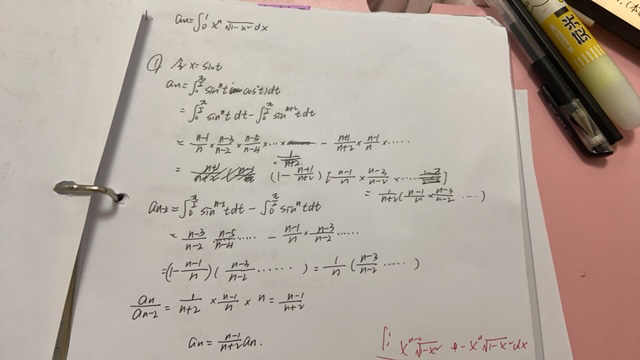 an=∫₀¹ xⁿ√1-x² dx
① 令 x=sint
an=∫₀^(π/2) sinⁿt cos²t)dt
=∫₀^(π/2) sinⁿt dt-∫₀^(π/2) sinⁿ⁺²t dt
= (n-1)/n × (n-3)/(n-2) × (n-5)/(n-4) × ... × - (n+1)/(n+2) × (n-1)/n × .....
= (1- (n+1)/(n+2)) [(n-1)/n × (n-3)/(n-2) × ....]
= 1/(n+2) ((n-1)/n × (n-3)/(n-2) ....)
an-2=∫₀^(π/2) sinⁿ⁻²t dt-∫₀^(π/2) sinⁿt dt
= (n-3)/(n-2) (n-5)/(n-4) ..... - (n-1)/n × (n-3)/(n-2) .....
=(1- (n-1)/n) ( (n-3)/(n-2) ...... ) = 1/n ( (n-3)/(n-2) ..... )
an/an-2 = 1/(n+2) × (n-1)/n × n = (n-1)/(n+2)
an= (n-1)/(n+2) an.
∫₀¹ xⁿ⁻²√1-x² - xⁿ√1-x² dx